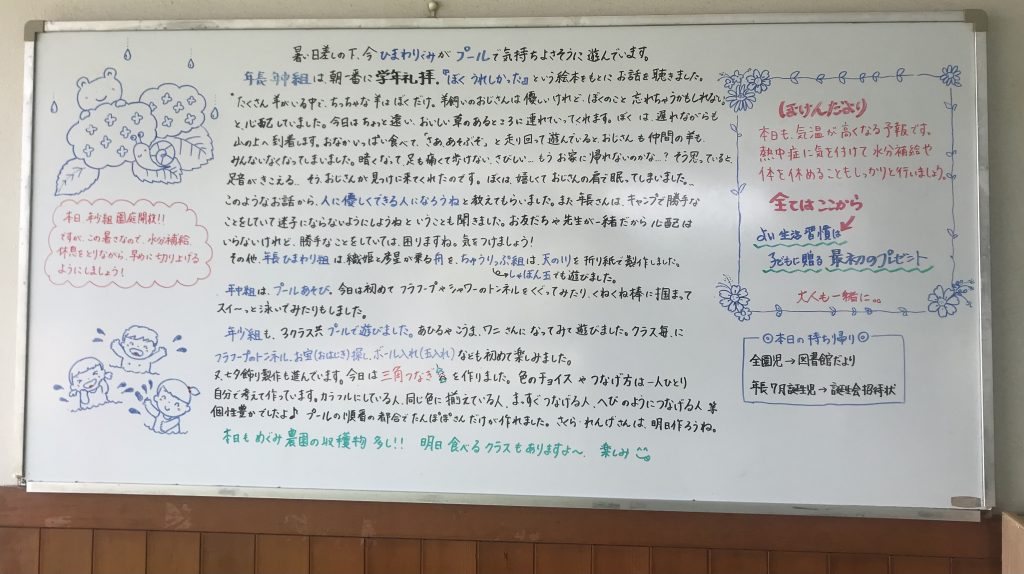 暑い日差しの下、今ひまわりぐみがプールで気持ちよさそうに遊んでいます。
年長年中組は、朝一番に学年礼拝。『ぼくうれしかった』という絵本をもとにお話を聴きました。
"たくさん羊がいる中で、ちっちゃな羊はぼくだけ。羊飼いのおじさんは優しいけれど、ぼくのこと忘れちゃうかもしれない
と、心配していました。今日はちょっと遠い、おいしい草のあるところに連れていってくれます。ぼくは、遅れながらも
山の上へ到着します。おなかいっぱい食べて、「さああそぶぞ。」と走り回って遊んでいると、おじさんも仲間の羊も
みんないなくなってしまいました。暗くなって、足も痛くて歩けない、さびしい…もうお家に帰れないのかな…?そう思っていると、
足音がきこえる…そう、おじさんが見つけに来てくれたのです。ぼくは、嬉しくておじさんの肩で眠ってしまいました…
このようなお話から、人に優しくできる人になろうねと教えてもらいました。また年長さんは、キャンプで勝手な
ことをしていて迷子にならないようにしようねということも聞きました。お友だちや先生が一緒だから心配は
いらないけれど、勝手なことをしていては、困りますね。気をつけましょう!
その他、年長ひまわり組は織姫と彦星が乗る舟を、ちゅうりっぷ組は、天の川を折り紙で製作しました。
しゃぼん玉でも遊びました。
年中組は、プールあそび。今日は初めてフラフープやシャワーのトンネルをくぐってみたり、くねくね棒に掴まって
スイーっと泳いでみたりもしました。
年少組も、3クラス共プールで遊びました。あひるやこうま、ワニさんになってみて遊びました。クラス毎に
フラフープのトンネル、お宝(おはじき)探し、ボール入れ(玉入れ)なども初めて楽しみました。
又、七夕飾り製作も進んでいます。今日は三角つなぎを作りました。色のチョイスやつなげ方は一人ひとり
自分で考えて作っています。カラフルにしている人、同じ色に揃えている人、まっすぐつなげる人、へびのようにつなげる人等
個性豊かでしたよ♪プールの順番の都合でたんぽぽさんだけが作れました。さくら・れんげさんは、明日作ろうね。
本日もめぐみ農園の収穫物多し!!明日食べるクラスもありますよ〜、楽しみ
本日年少組園庭開放!!
ですが、この暑さなので、水分補給、
休息をとりながら、早めに切り上げる
ようにしましょう!
ほけんだより
本日も、気温が高くなる予報です。
熱中症に気を付けて水分補給や
体を休めることもしっかりと行いましょう。
全てはここから
よい生活習慣は
子どもに贈る最初のプレゼント
大人も一緒に。。
◎本日の持ち帰り◎
全園児→図書館だより
年長7月誕生児→誕生会招待状